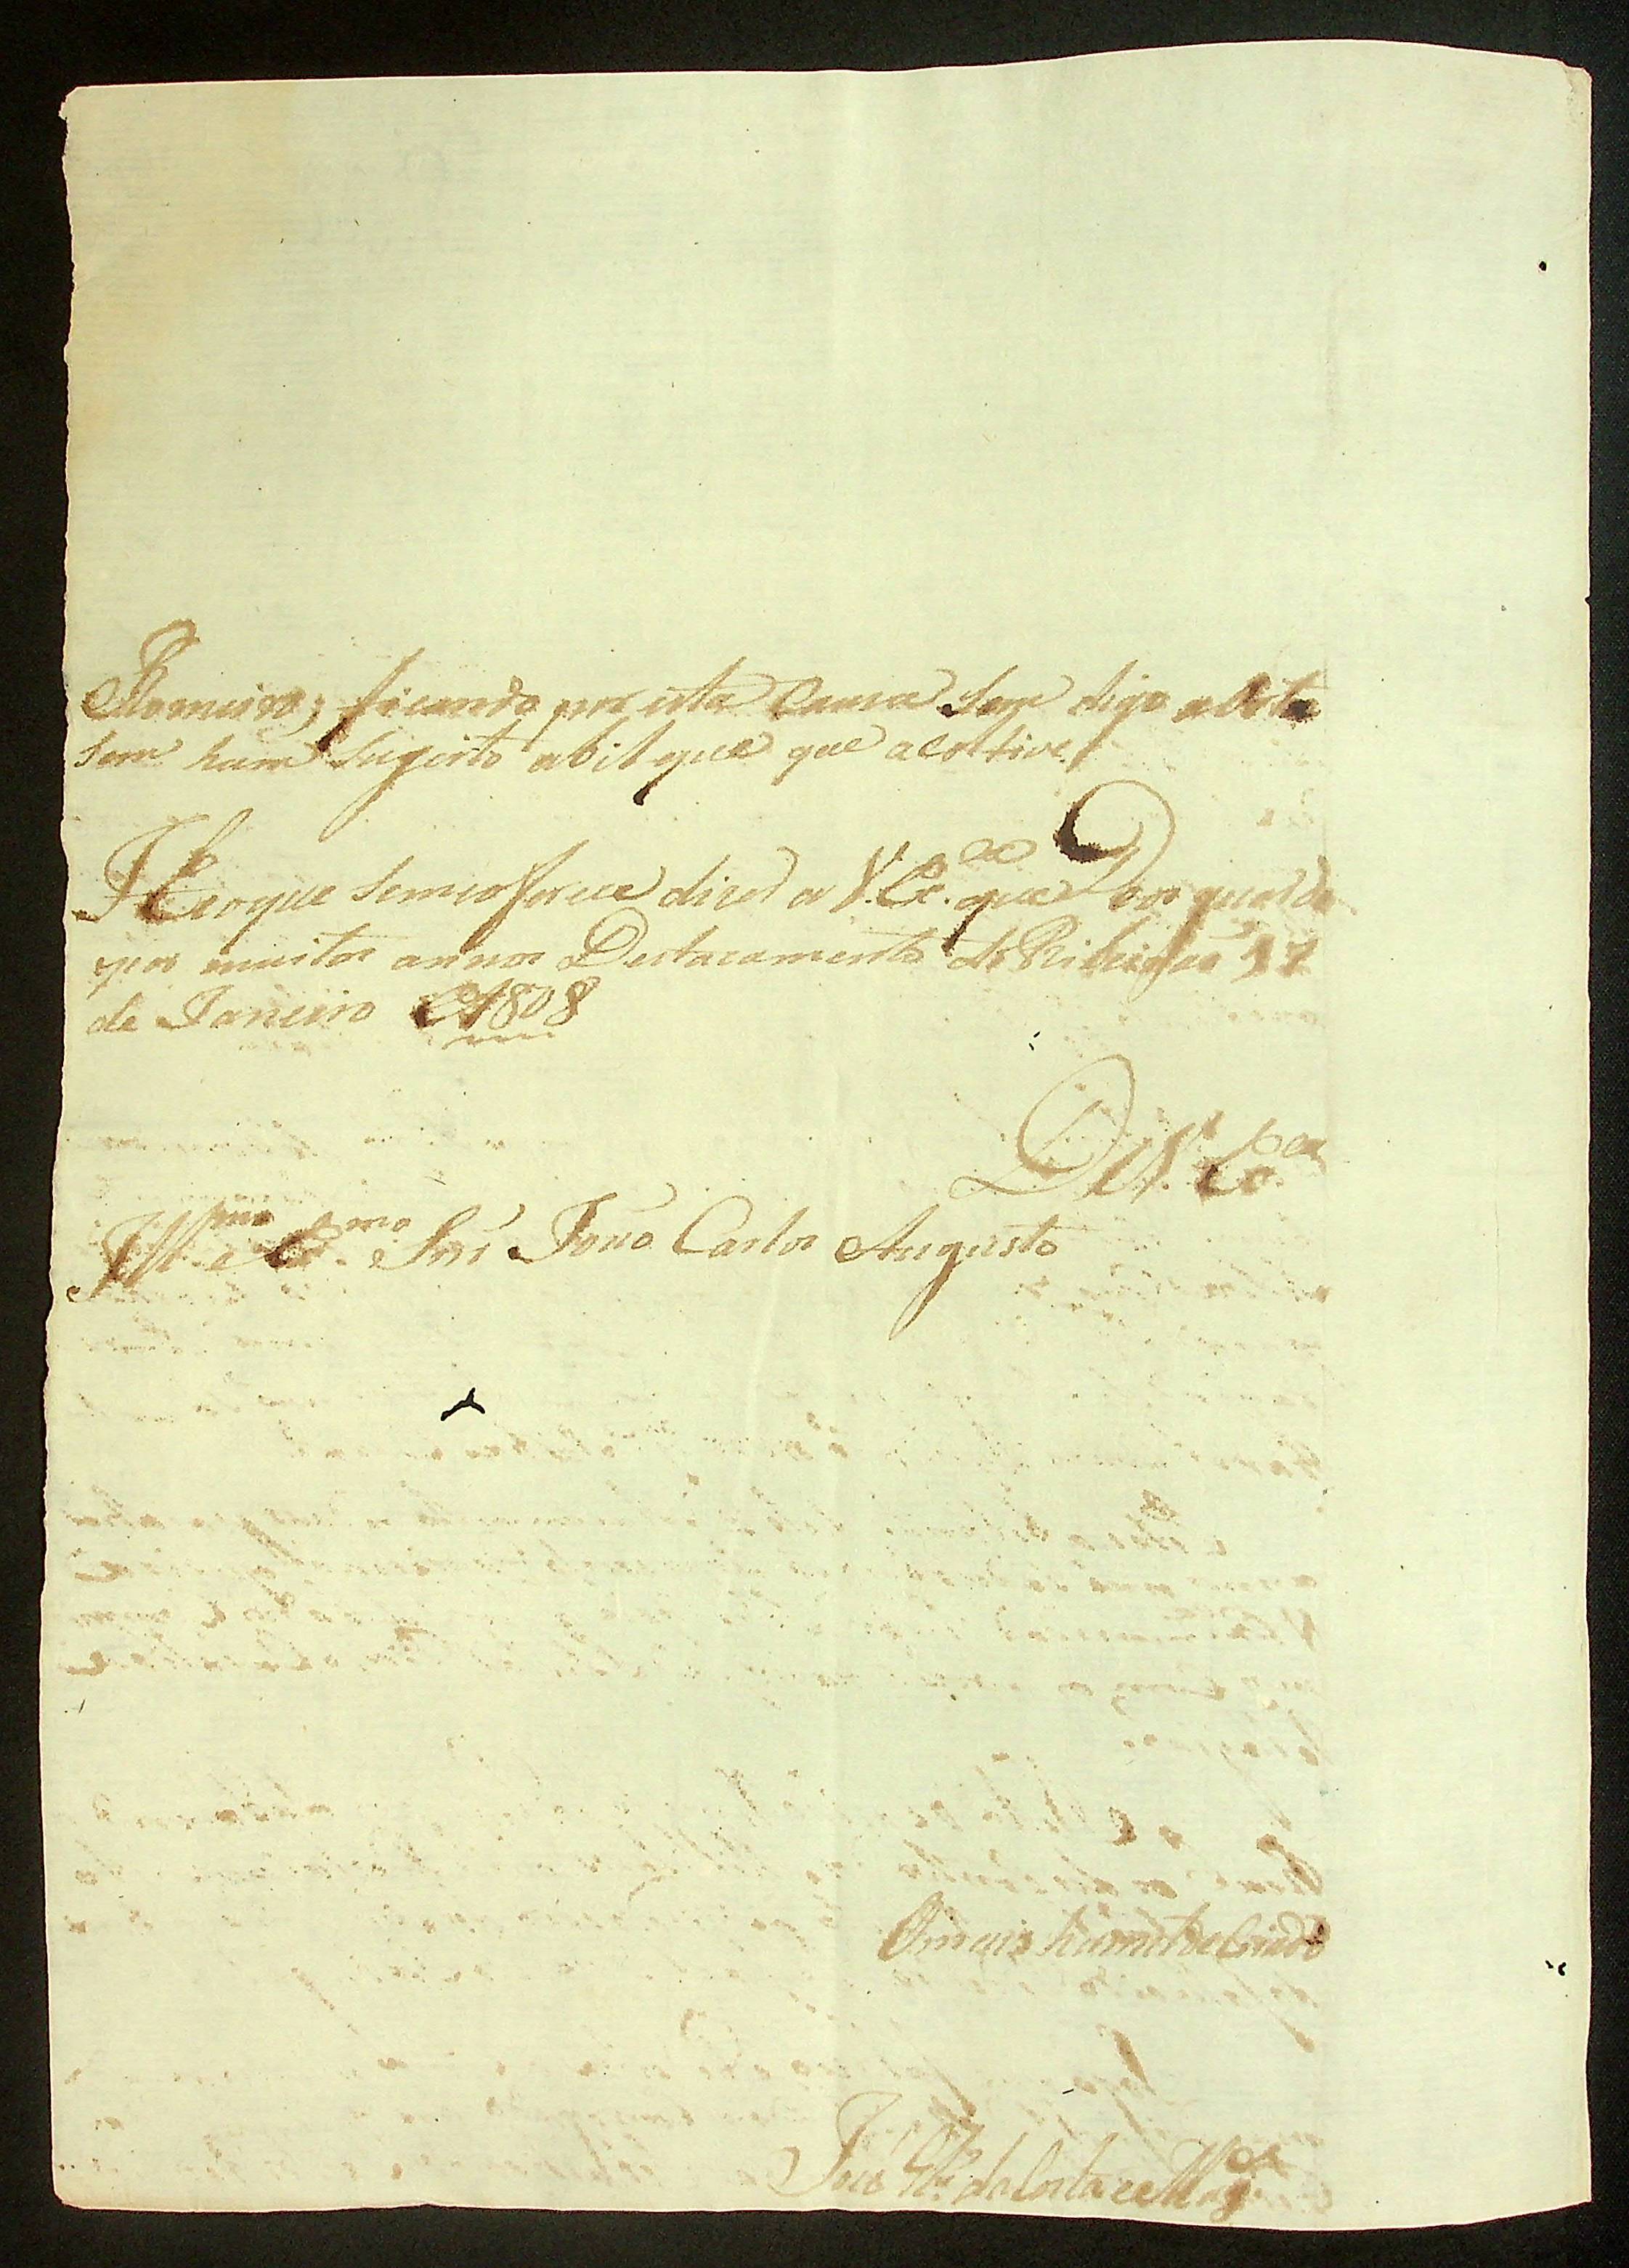 Romeiro; ficando por esta Cauza Sem digo a Bota
Sem hum Sugeito abil que que a coltive.
He o que Seme oferece dizer a V. Ex.ca que Deos guarde
por muitos annos Destacamento do Ribeirão 17
de Janeiro 1808
De V. Ex.ca
Ill.mo e Ex.mo Snr João Carlos Augusto
O mais humilde Criado
José da Costa e